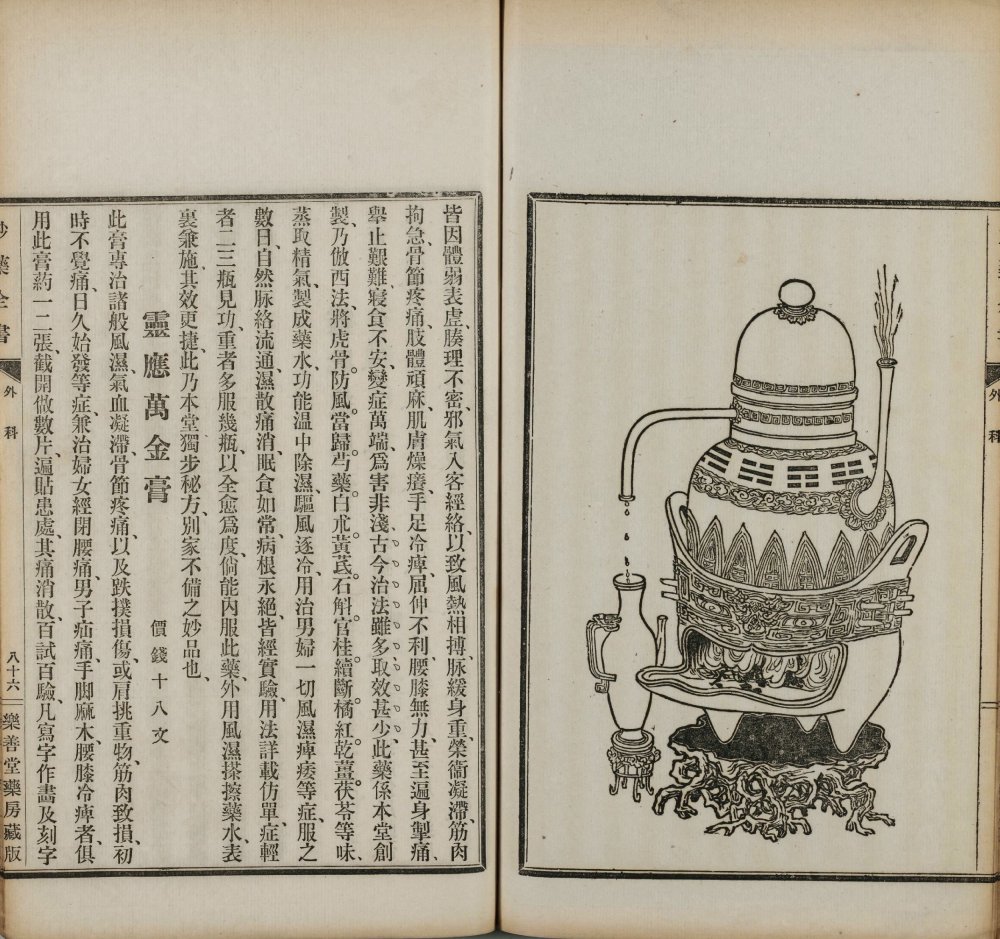 外科
皆因體弱表虛腠理不密邪氣入客經絡、以致風熱相搏、脉緩身重、榮衞凝滯、筋肉
拘急、骨節疼痛、肢體頑麻、肌膚燥癢、手足冷痺、屈伸不利、腰膝無力、甚至遍身掣痛、
舉止艱難、寢食不安、變症萬端、爲害非淺、古今治法雖多、取效甚少、此藥係本堂創
製、乃倣西法、將虎骨。防風。當歸。芍藥。白朮。黃芪。石斛。官桂。續斷。橘紅。乾薑。茯苓等味、
蒸取精氣、製成藥水、功能温中除濕、驅風逐冷、用治男婦一切風濕痺痿等症、服之
數日、自然脉絡流通、濕散痛消、眠食如常、病根永絕、皆經實驗、用法詳載仿單、症輕
者二三瓶見功、重者多服幾瓶、以全愈爲度、倘能內服此藥、外用風濕搽擦藥水、表
裏兼施、其效更捷、此乃本堂獨步秘方、別家不備之妙品也、
靈應萬金膏　價錢十八文
此膏專治諸般風濕、氣血凝滯、骨節疼痛、以及跌撲損傷、或肩挑重物、筋肉致損、初
時不覺痛、日久始發等症、兼治婦女經閉腰痛、男子疝痛、手脚麻木、腰膝冷痺者、俱
用此膏葯一二張、截開做數片、遍貼患處、其痛消散、百試百驗、凡寫字作畫及刻字
妙藥全書　外科　八十六　樂善堂藥房藏版